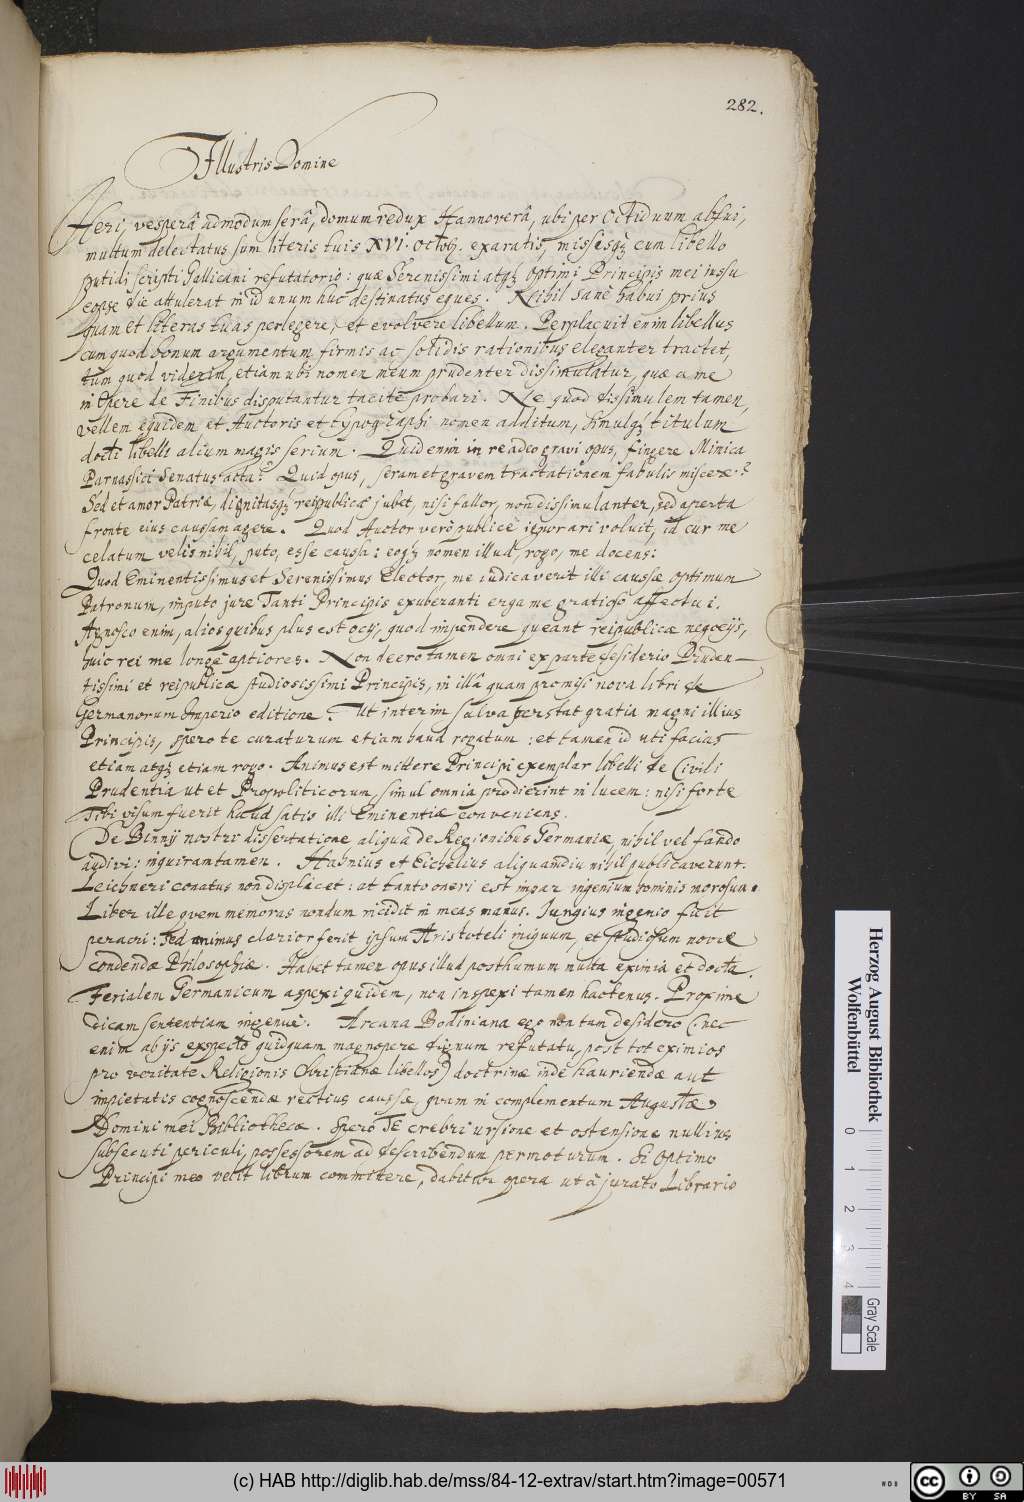 282.
Illustris Domine
Heri, vesperâ admodum serâ, domum redux Hannoverâ, ubi per octiduum abfui,
multum delectatus sum literis tuis XVI. Octobr. exaratis, missisqꝫ cum libello
putidi scripti Gallicani refutatorio: quæ Serenissimi atqꝫ Optimi Principis mei jussu
eopse die attulerat in id unum huc destinatus eques. Nihil sanè habui prius
quam et literas tuas perlegere, et evolvere libellum. Perplacuit enim libellus
cum quod bonum argumentum firmis ac solidis rationibus eleganter tractet,
tum quod viderim, etiam ubi nomen meum prudenter dissimulatur, quæ a me
in Opere de Finibus disputantur tacitè probari. Ne quod dissimulem tamen,
vellem equidem et Auctoris et typographi nomen additum, simulqꝫ titulum
docti libelli alium magis serium. Quid enim in re adeo gravi opus, fingere Minica
Parnassici Senatus acta? Quid opus, seram et gravem tractationem fabulis miscere?
Sed et amor Patriæ, dignitasqꝫ reipublicæ jubet, nisi fallor, non dissimulanter, sed aperta
fronte eius caussam agere. Quod Auctor verò publicè ignorari voluit, id cur me
celatum velis nihil, puto, esse caussæ: eoqꝫ nomen illud, rogo, me doceas:
Quod Eminentissimus et Serenissimus Elector, me iudicaverit illi caussæ optimum
Patronum, imputo jure Tanti Principis exuberanti erga me gratioso affectui.
Agnosco enim, alios quibus plus est ocij, quod impendere queant reipublicæ negocijs,
huic rei me longè aptiores. Non deero tamen omni ex parte desiderio Pruden-
tissimi et reipublicæ studiosissimi Principis, in illâ quam promisi nova libri de
Germanorum Imperio editione. Ut interim salva perstat gratia magni illius
Principis, spero te curaturum etiam haud rogatum: et tamen id uti facias
etiam atqꝫ etiam rogo. Animus est mittere Principi exemplar libelli de Civili
Prudentia ut et Propoliticorum, simul omnia prodierint in lucem: nisi forte
Tibi visum fuerit haud satis illi Eminentiæ conveniens.
De Binnij nostri dissertatione aliqua de Regionibus Germaniæ, nihil vel fando
audivi: inquiram tamen. Hahnius et Eichelius aliquamdiu nihil publicaverunt.
Leichneri conatus non displicet: at tanto oneri est impar ingenium hominis morosum.
Liber ille quem memoras nondum incidit in meas manus. Jungius ingenio fuit
peracri: sed animus elatior ferit ipsum Aristoteli iniquum, et studiosum novæ
condendæ Philosophiæ. Habet tamen opus illud posthumum multa eximia et docta.
Ferialem Germanicum aspexi quidem, non inspexi tamen hactenus. Proxime
dicam sententiam ingenuè. Arcana Bodiniana ego non tam desidero (nec
enim ab ijs exspecto quidquam magnopere dignum refutatu, post tot eximios
pro veritate Religionis Christianæ libellos) doctrinæ inde hauriendæ aut
impietatis cognoscendæ rectius caussæ, quam in complementum Augustæ
Domini mei Bibliothecæ. Spero TE crebri ursione et ostensione nullius
subsecuti periculi, possessorem ad describendum permoturum. Si Optimo
Principi meo velit librum committere, dabitur opera ut à jurato Librario
Herzog August Bibliothek
Wolfenbüttel
0 1 2 3 4
Gray Scale
(c) HAB http://diglib.hab.de/mss/84-12-extrav/start.htm?image=00571
cc BY SA